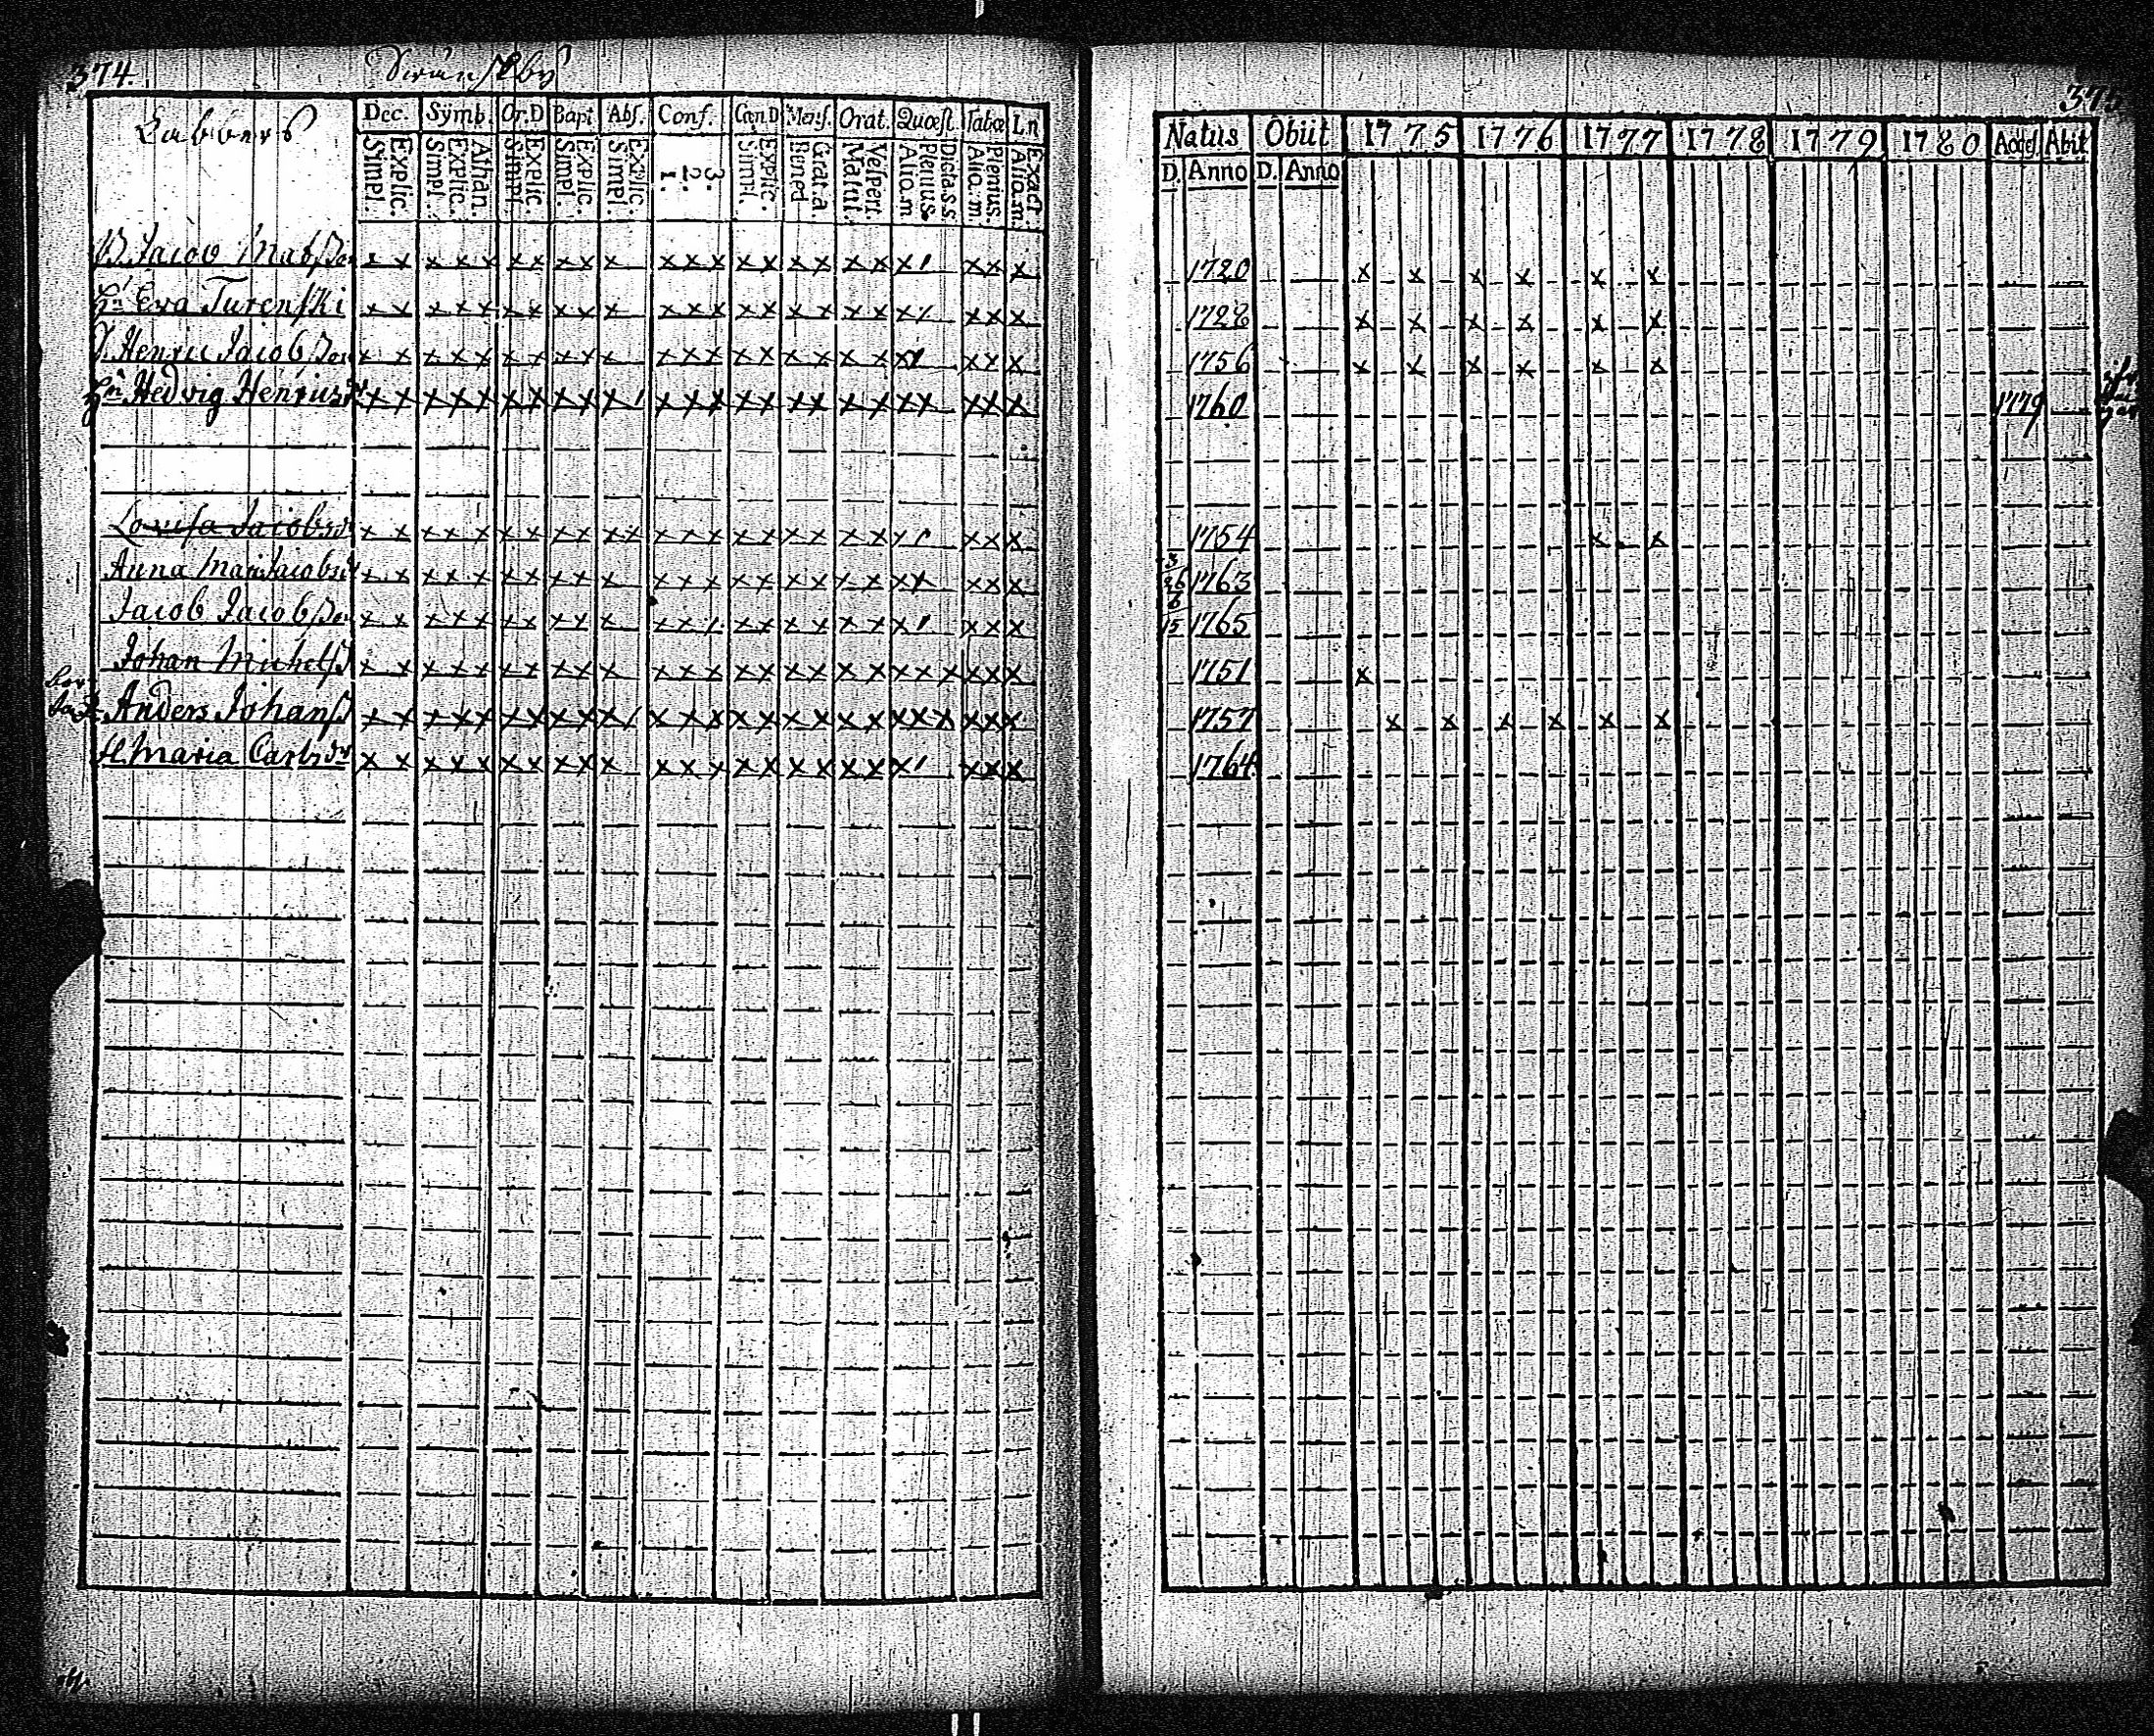 374.
Labbers
Dec. Symb. Or.D Bapt Abs. Conf. Cœn.D Mens. Orat. Quæst. Tabæ Ln
Explic. Simpl. Athan. Explic. Simpl. Explic. Simpl. Explic. Simpl. Explic. Simpl. 3. 2. 1. Explic. Simpl. Grat.a. Bened Vespert. Matut. Dicta.s.s Plenius Alio.m Plenius. Alio.m. Exact Alio.m.
Jacob Matsson x x x x x x x x x x x x x x x x x x x x x x x
Eva Turenski x x x x x x x x x x x x x x x x x x x x x x
Henric Jacobsson x x x x x x x x x x x x x x x x x x x x x x
Hedvig Henricsdr x x x x x x x x x x x x x x x x x x x x x x x
Lovisa Jacobsdr x x x x x x x x x x x x x x x x x x x x x x x
Anna Mar. Jacobsdr x x x x x x x x x x x x x x x x x x x x x x x
Jacob Jacobsson x x x x x x x x x x x x x x x x x x x x x
Johan Michelss x x x x x x x x x x x x x x x x x x x x x x x x
Anders Johanss x x x x x x x x x x x x x x x x x x x x x x x x
H. Maria Carlsdr x x x x x x x x x x x x x x x x x x x x x x
375
Natus Obiit 1775 1776 1777 1778 1779 1780 Acces. Abit
D. Anno D. Anno
1720 x x x x x x
1728 x x x x x x
1756 x x x x x x
1760 1779
1754 x x
3/26 1763
6/15 1765
1751 x
1757 x x x x x x
1764